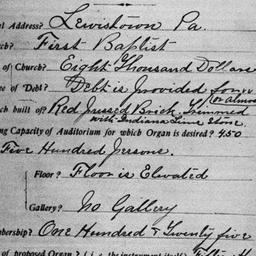 al Address? Lewistown Pa.
ch? First Baptist
of Church? Eight Thousand Dollars
e of Debt? Debt is provided for
or almos
rch built of? Red Pressed Brick, Trimmed
with Indiana Lime stone
ng Capacity of Auditorium for which Organ is desired? 450
Five Hundred Persons.
Floor? Floor is Elevated
Gallery? No Gallery
mbership? One Hundred & Twenty five
of proposed Organ?